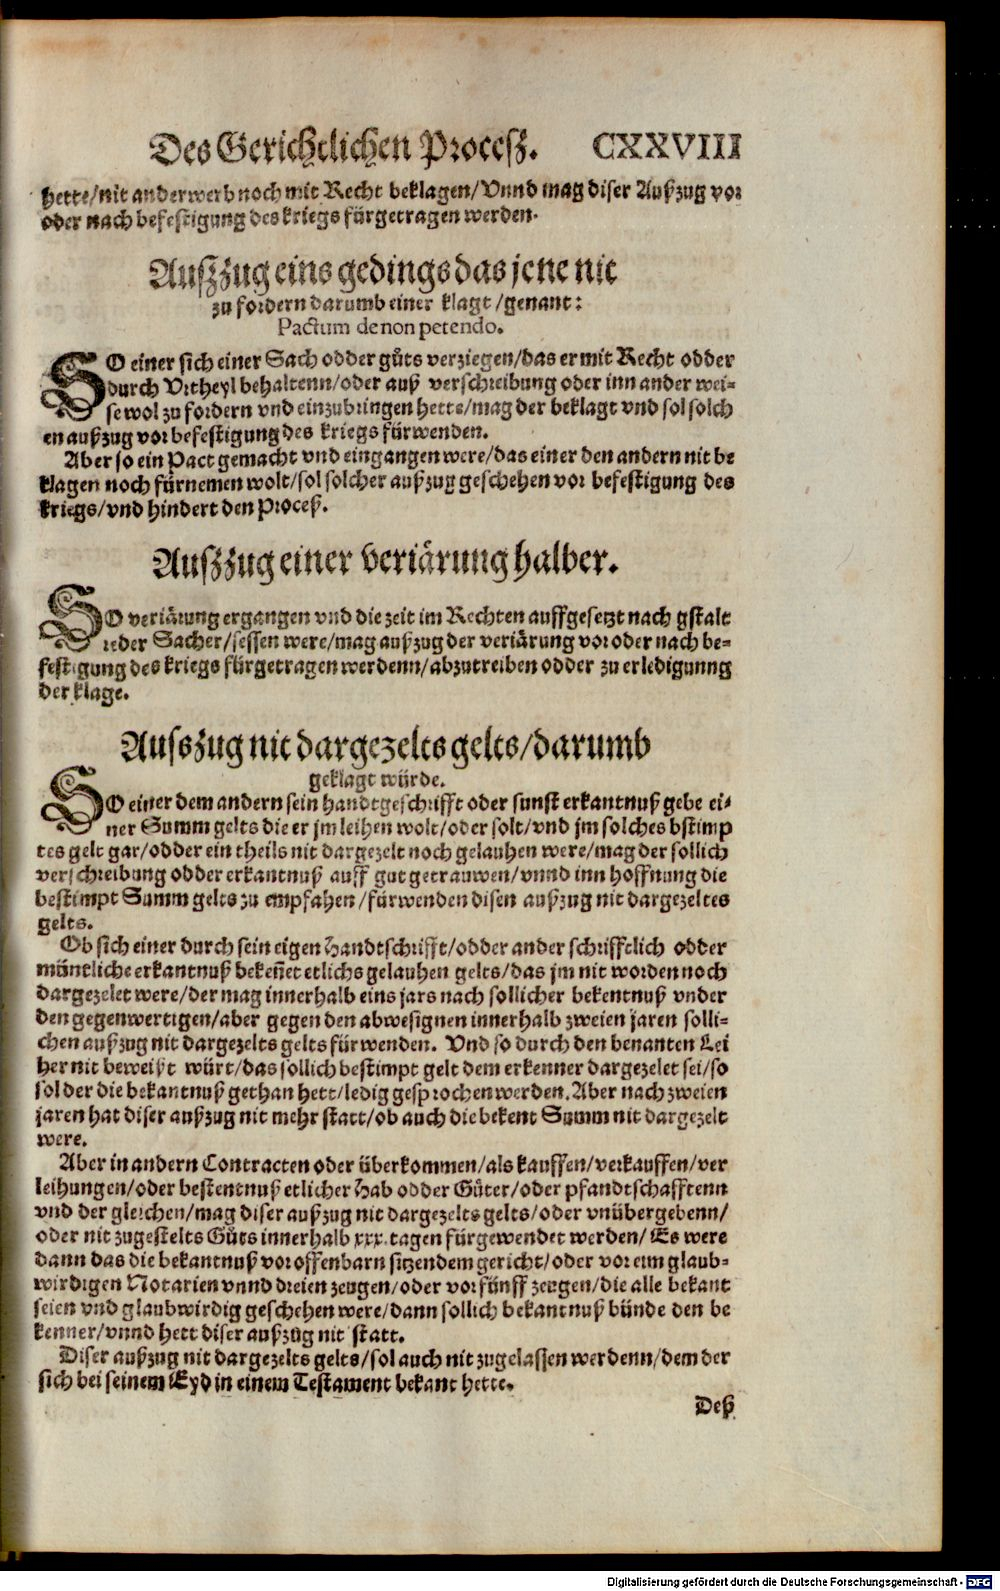 Des Gerichtlichen Procesz. CXXVIII
hette/nit anderwerb noch mit Recht beklagen/Vnnd mag diser Außzug vor
oder nach befestigung des kriegs fürgetragen werden.
Auszzug eins gedings das jene nit
zu fordern darumb einer klagt/genant:
Pactum de non petendo.
SO einer sich einer Sach odder gůts verziegen/das er mit Recht odder
durch Vrtheyl behaltenn/oder auß verschreibung oder inn ander wei-
se wol zu fordern vnd einzubringen hette/mag der beklagt vnd sol solch
en außzug vor befestigung des kriegs fürwenden.
Aber so ein Pact gemacht vnd eingangen were/das einer den andern nit be
klagen noch fürnemen wolt/sol solcher außzug geschehen vor befestigung des
kriegs/vnd hindert den Proceß.
Auszzug einer veriärung halber.
SO veriärung ergangen vnd die zeit im Rechten auffgesetzt nach gstalt
ieder Sacher/sessen were/mag außzug der veriärung vor oder nach be-
festigung des kriegs fürgetragen werdenn/abzutreiben odder zu erledigunng
der klage.
Ausszug nit dargezelts gelts/darumb
geklagt würde.
SO einer dem andern sein handtgeschrifft oder sunst erkantnuß gebe ei-
ner Summ gelts die er jm leihen wolt/oder solt/vnd jm solches bstimp
tes gelt gar/odder ein theils nit dargezelt noch gelauhen were/mag der sollich
verschreibung odder erkantnuß auff gut getrauwen/vnnd inn hoffnung die
bestimpt Summ gelts zu empfahen/fürwenden disen außzug nit dargezeltes
gelts.
Ob sich einer durch sein eigen Handtschrifft/odder ander schrifftlich odder
müntliche erkantnuß bekeñet etlichs gelauhen gelts/das jm nit worden noch
dargezelet were/der mag innerhalb eins jars nach sollicher bekentnuß vnder
den gegenwertigen/aber gegen den abwesignen innerhalb zweien jaren solli-
chen außzug nit dargezelts gelts fürwenden. Vnd so durch den benanten Lei
her nit beweißt würt/das sollich bestimpt gelt dem erkenner dargezelet sei/so
sol der die bekantnuß gethan hett/ledig gesprochen werden. Aber nach zweien
jaren hat diser außzug nit mehr statt/ob auch die bekent Summ nit dargezelt
were.
Aber in andern Contracten oder überkommen/als kauffen/verkauffen/ver
leihungen/oder bestentnuß etlicher Hab odder Güter/oder pfandtschafftenn
vnd der gleichen/mag diser außzug nit dargezelts gelts/oder vnübergebenn/
oder nit zugestelts Gůts innerhalb xxx. tagen fürgewendet werden/Es were
dann das die bekantnuß vor offenbarn sitzendem gericht/oder vor eim glaub-
wirdigen Notarien vnnd dreien zeugen/oder vor fünff zeugen/die alle bekant
seien vnd glaubwirdig geschehen were/dann sollich bekantnuß bünde den be
kenner/vnnd hett diser außzůg nit statt.
Diser außzug nit dargezelts gelts/sol auch nit zugelassen werdenn/dem der
sich bei seinem Eyd in einem Testament bekant hette.
Deß
Digitalisierung gefördert durch die Deutsche Forschungsgemeinschaft - DFG